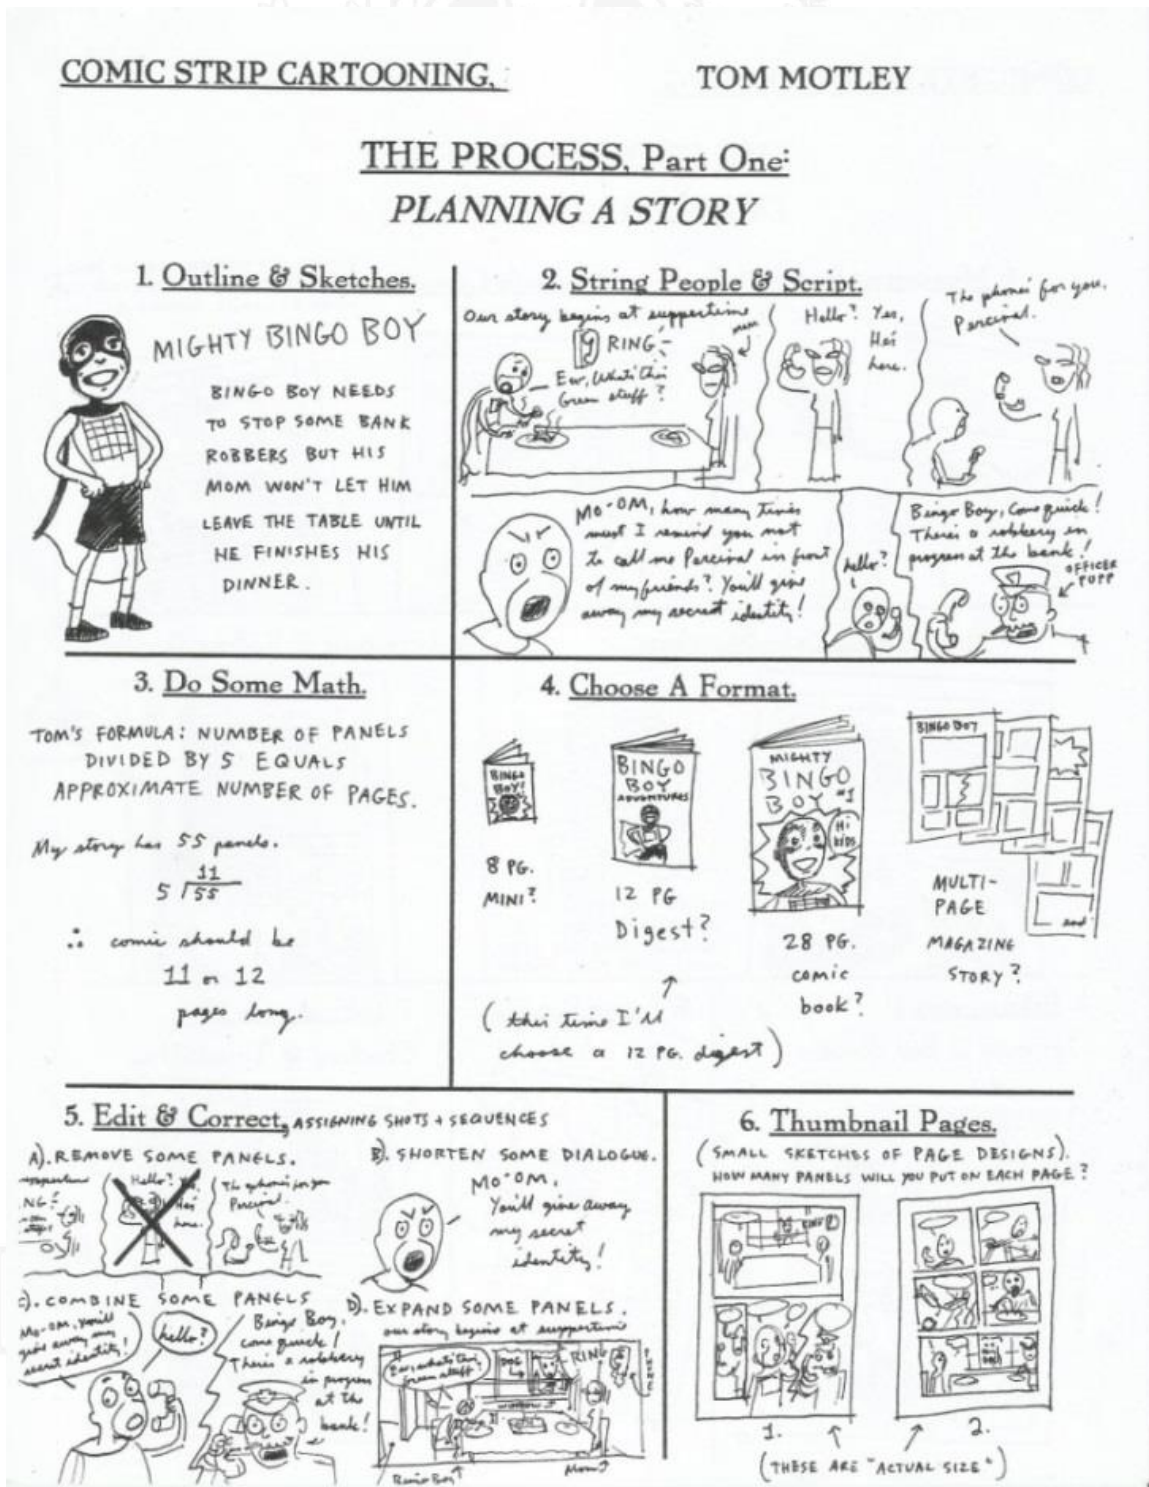 COMIC STRIP CARTOONING,
TOM MOTLEY
THE PROCESS, Part One:
PLANNING A STORY
1. Outline & Sketches.
MIGHTY BINGO BOY
BINGO BOY NEEDS
TO STOP SOME BANK
ROBBERS BUT HIS
MOM WON'T LET HIM
LEAVE THE TABLE UNTIL
HE FINISHES HIS
DINNER.
2. String People & Script.
Our story begins at suppertime
RING
Ew, What's this
Green stuff?
mom
Hello? Yes,
He's
here.
The phone's for you,
Percival.
MO-OM, how many times
must I remind you not
to call me Percival in front
of my friends? You'll give
away my secret identity!
hello?
Bingo Boy, Come quick!
There's a robbery in
progress at the bank!
OFFICER
PUPP
3. Do Some Math.
TOM'S FORMULA: NUMBER OF PANELS
DIVIDED BY 5 EQUALS
APPROXIMATE NUMBER OF PAGES.
My story has 55 panels.
11
5 55
∴ comic should be
11 or 12
pages long.
4. Choose A Format.
BINGO
BOY!
8 PG.
MINI?
BINGO
BOY
ADVENTURES
12 PG
Digest?
MIGHTY
BINGO
BOY #1
Hi
KIDS
28 PG.
comic
book?
BINGO BOY
end
MULTI-
PAGE
MAGAZING
STORY?
(this time I'll
choose a 12 PG. digest)
5. Edit & Correct, ASSIGNING SHOTS + SEQUENCES
A). REMOVE SOME PANELS.
Hello? Yes,
He's
here.
The phone's for you
Percival.
B). SHORTEN SOME DIALOGUE.
MO-OM,
You'll give away
my secret
identity!
C). COMBINE SOME PANELS
MO-OM, you'll
give away my
secret identity!
hello?
Bingo Boy,
come quick!
There's a robbery
in progress
at the
bank!
D). EXPAND SOME PANELS.
our story begins at suppertime
Ew, what's this
green stuff?
DOG
RING
WINDOW
Bingo Boy
Mom
6. Thumbnail Pages.
(SMALL SKETCHES OF PAGE DESIGNS).
HOW MANY PANELS WILL YOU PUT ON EACH PAGE?
1.
2.
(THESE ARE "ACTUAL SIZE")